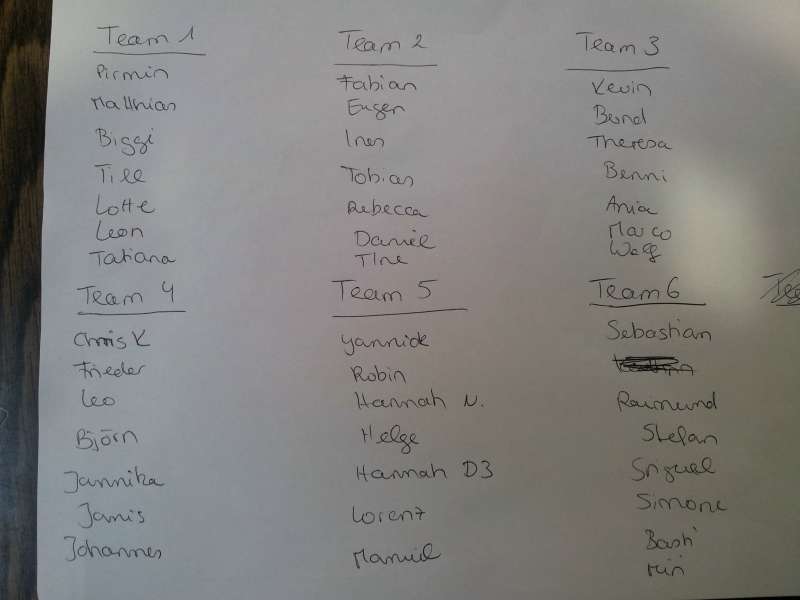 Team 1
Pirmin
Matthias
Biggi
Till
Lotte
Leon
Tatiana
Team 2
Fabian
Eugen
Ines
Tobias
Rebecca
Daniel
Tine
Team 3
Kevin
Bernd
Theresa
Benni
Marco
Team 4
Chris K
Frieder
Leo
Björn
Jannika
Janis
Johannes
Team 5
Yannick
Robin
Hannah N.
Helge
Hannah D3
Lorenz
Manuel
Team 6
Sebastian
Raimund
Stefan
Simone
Basti